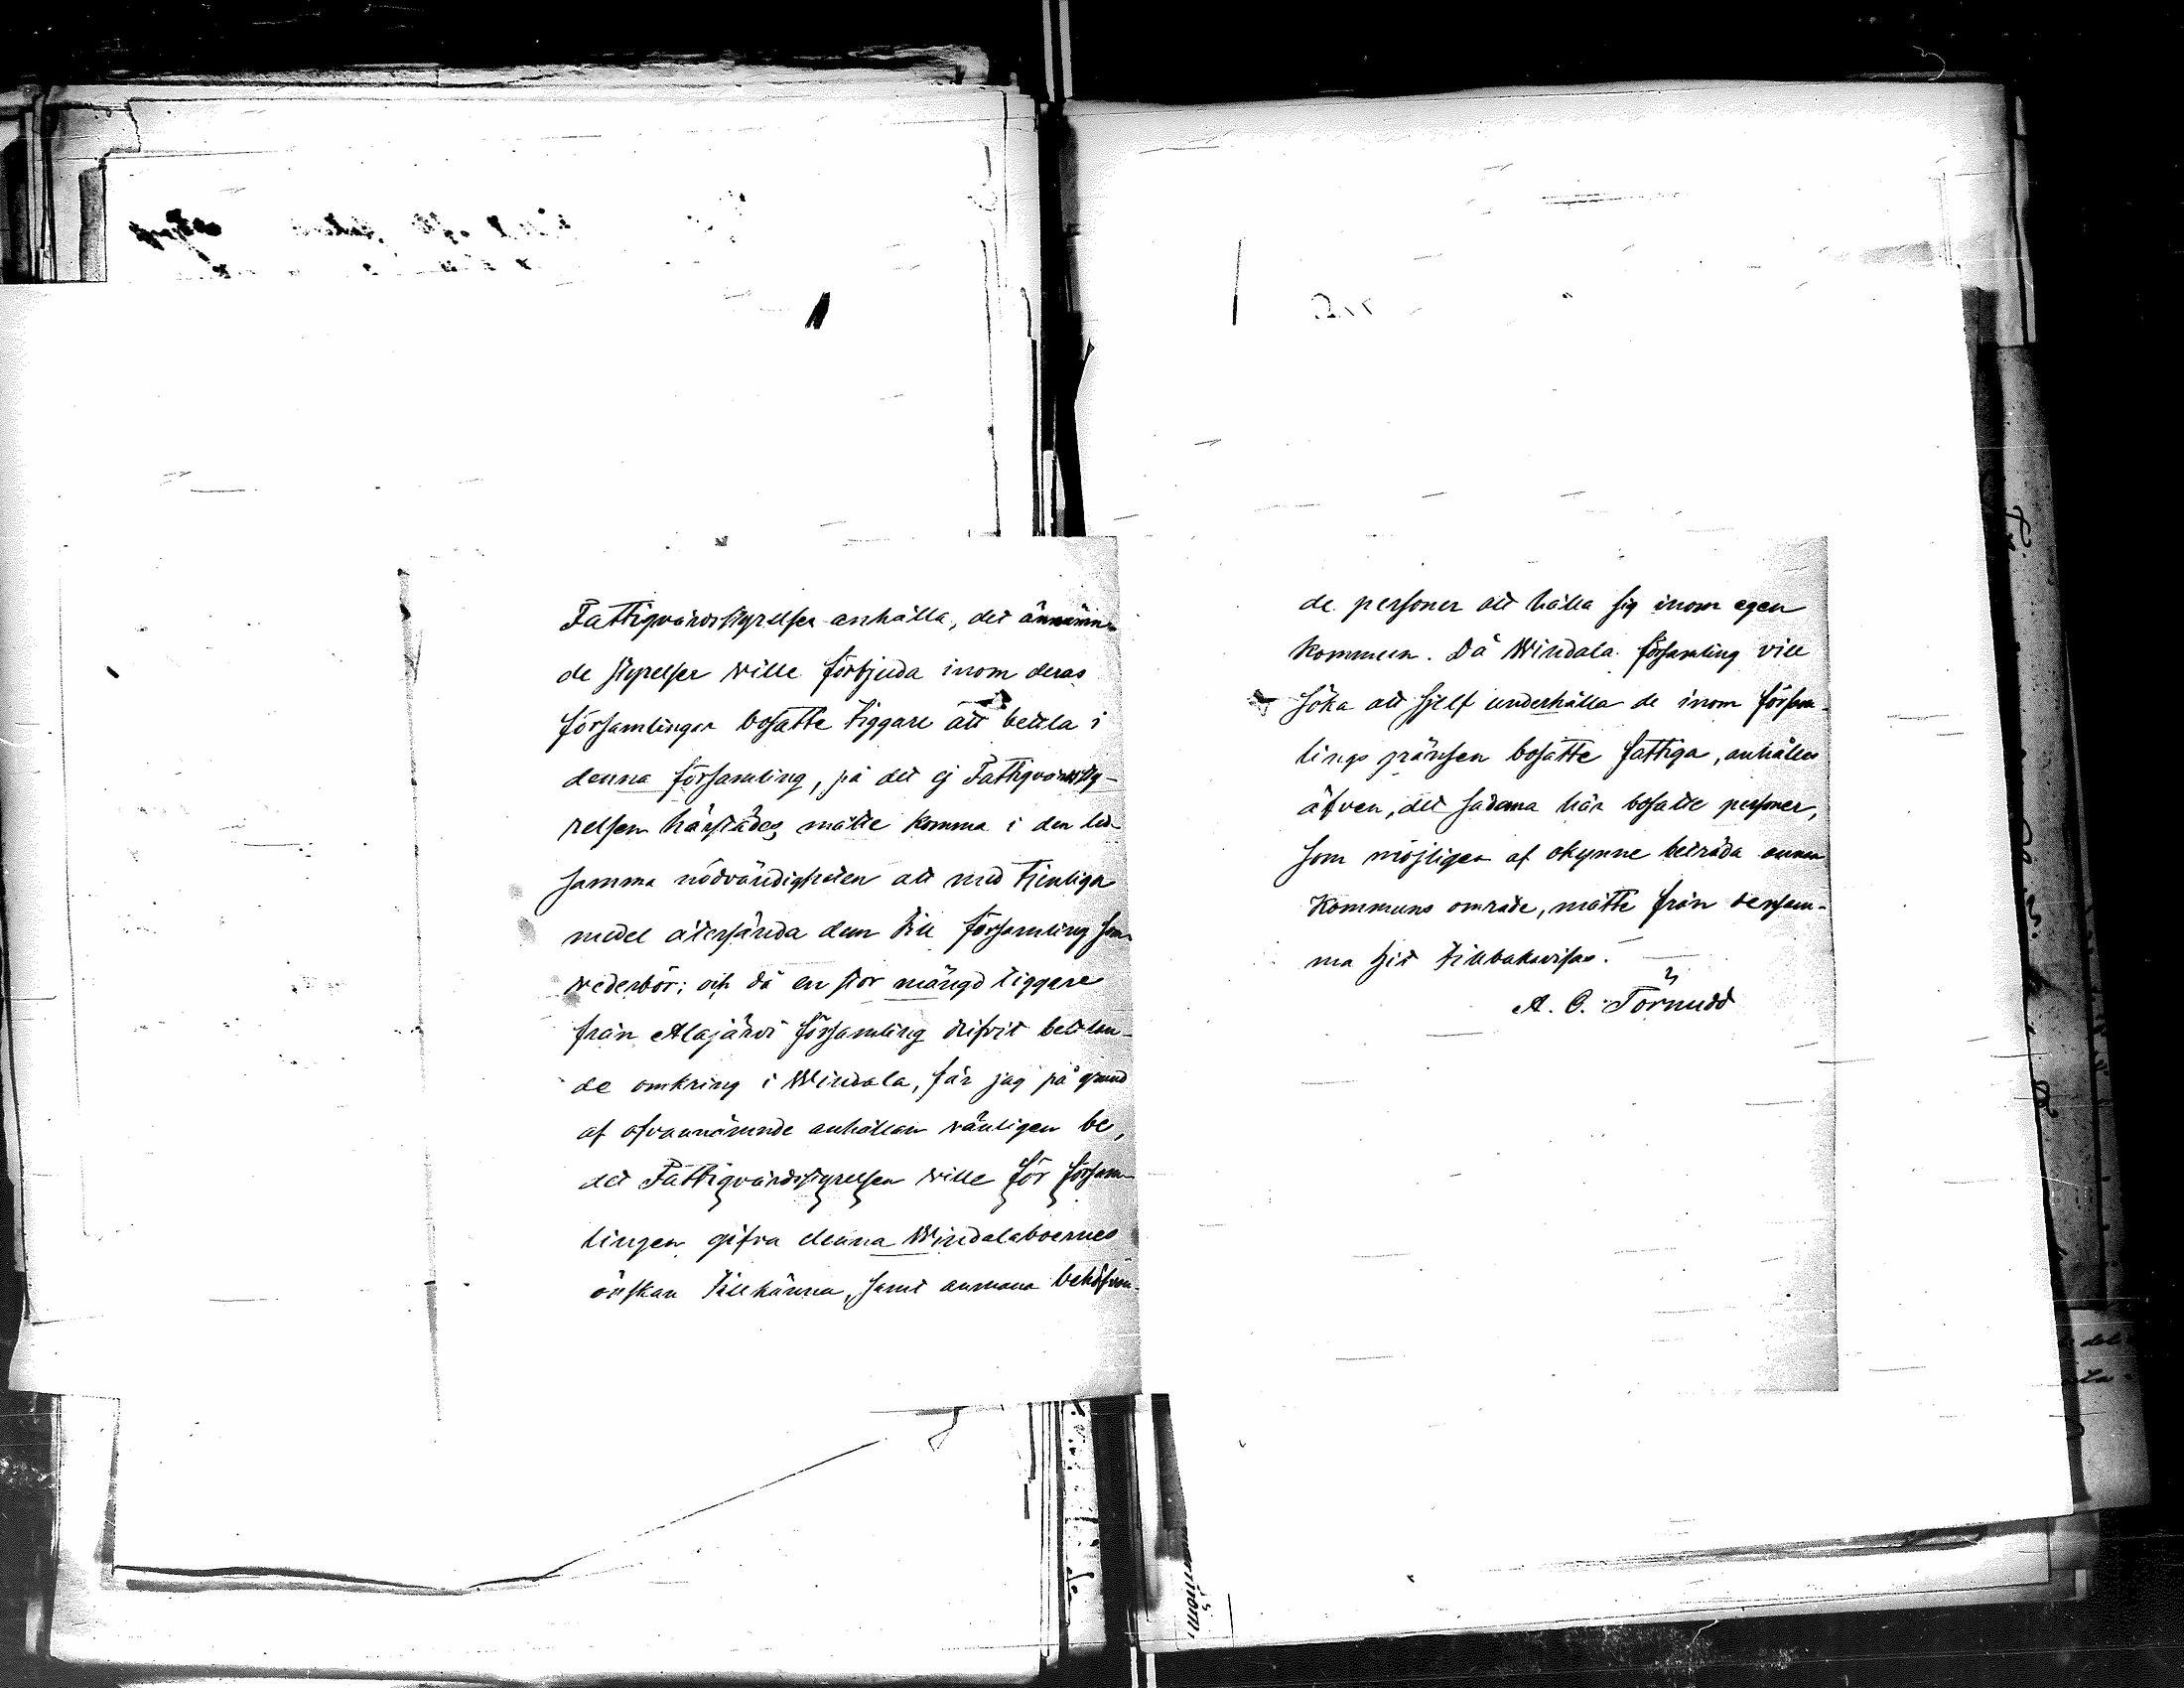 Fattigvårdsstyrelser anhålla, det ännämn-
de styrelser wille förbjuda inom deras
församlingar bosatte tiggare att bettla i
denna församling, på det ej Fattigvårdssty-
relsen härstädes måtte komma i den led-
samma nödvändigheten att med tjenliga
medel återsända dem till församling som
wederbör; och då en stor mängd tiggare
från Alajärvi församling drifvit bettlan-
de omkring i Windala, får jag på grund
af ofvannämnde anhållan vänligen be,
det Fattigvårdsstyrelsen wille för försam-
lingen gifva denna Windalaboernes
önskan tillkänna, samt anmana behöfvan-
de personer att hålla sig inom egen
kommun. Då Windala församling vill
söka att sjelf underhålla de inom försam-
lings gränsen bosatte fattiga, anhålles
äfven, det sådana här bosatte personer,
som möjligen af okynne beträda annan
kommuns område, måtte från densam-
ma hit tillbakavisas.
A. O. Törnudd